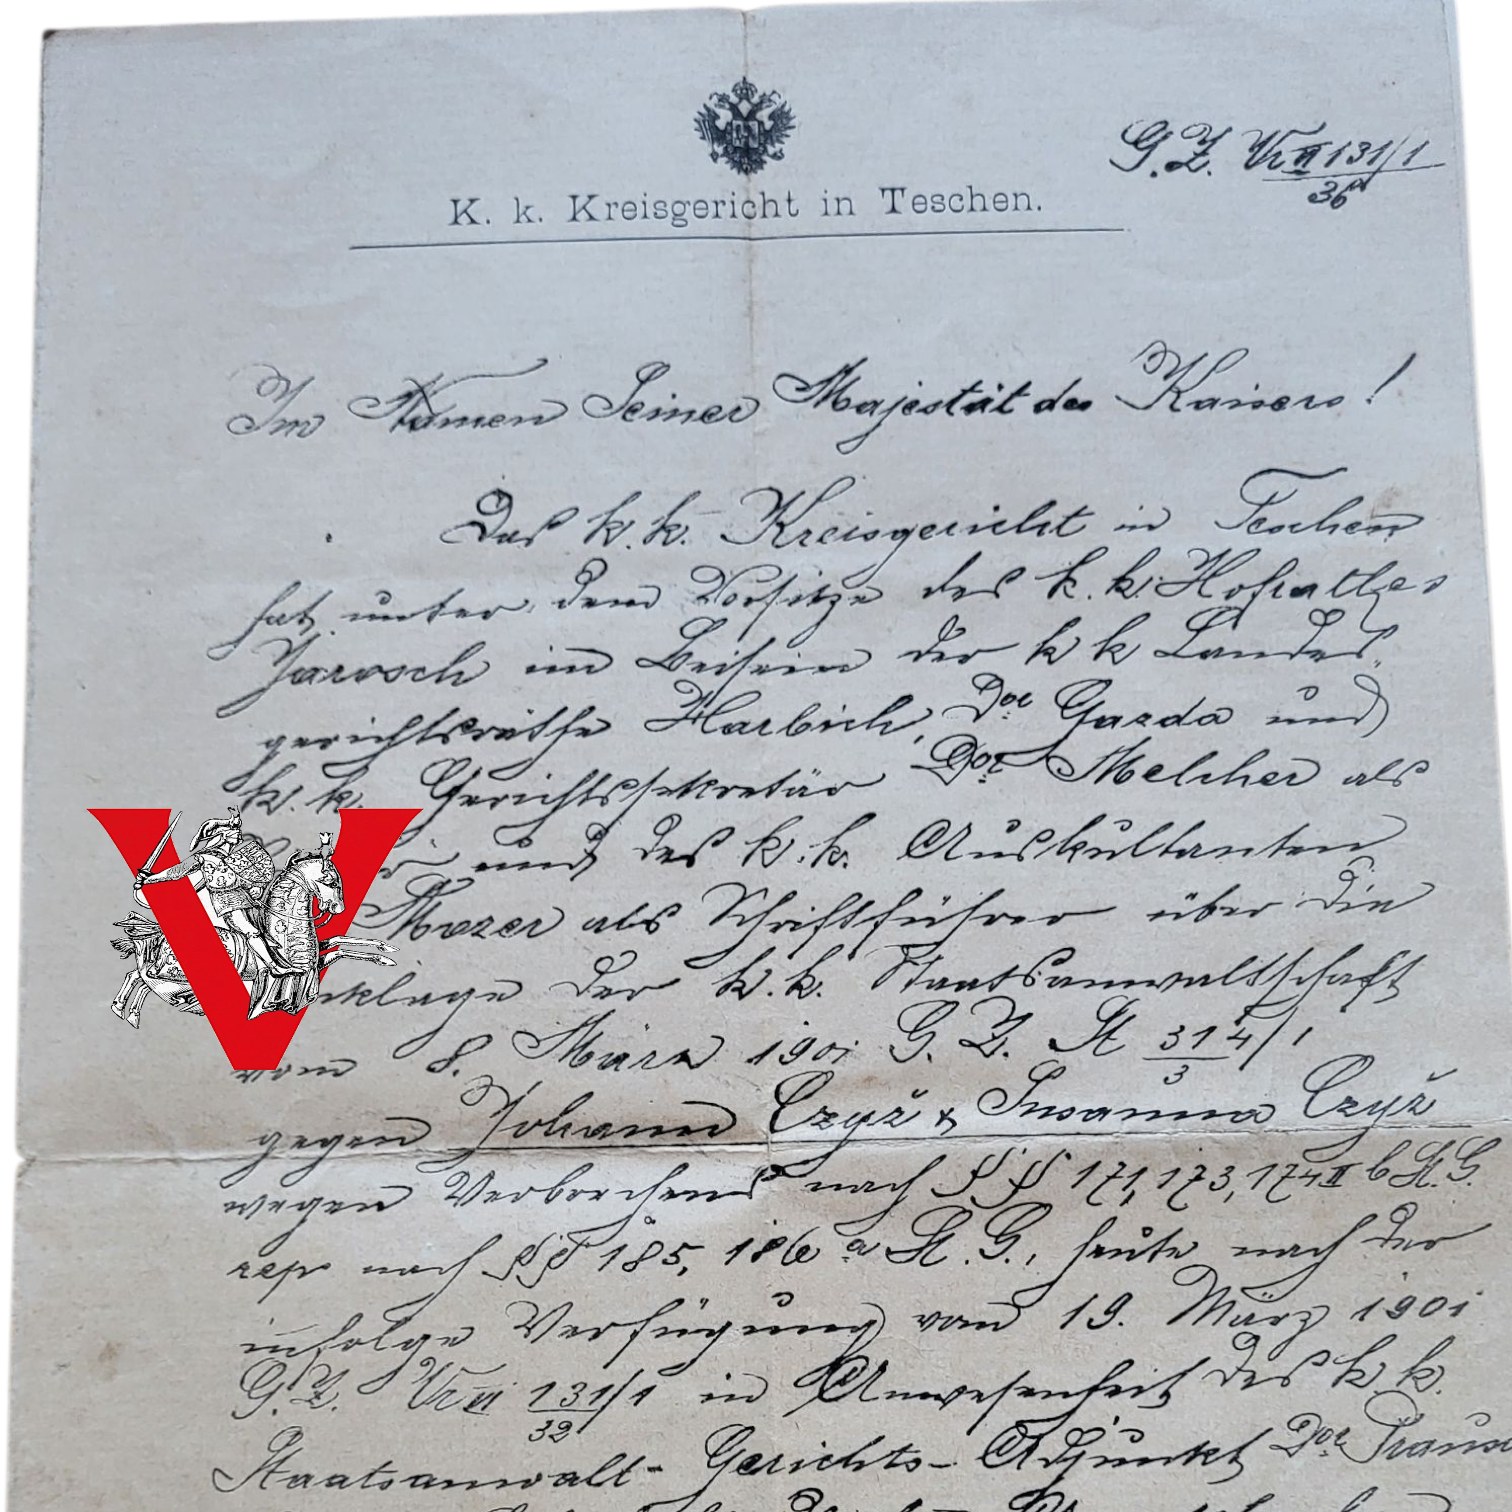 G. Z. Vr VI 131/1
36
K. k. Kreisgericht in Teschen.
Im Namen Seiner Majestät des Kaisers!
Das k. k. Kreisgericht in Teschen
hat unter dem Vorsitze des k. k. Hofrathes
Jarosch im Beisein der k k Landes-
gerichtsräthe Harbich, Dor Gazda und
k. k. Gerichtssekretär Dor Melcher als
und des k. k. Auskultanten
Mozer als Schriftführer über die
nklage der k. k. Staatsanwaltschaft
vom 8. März 1901 G. Z. St 31 4/1
3
gegen Johann Czyž & Susanna Czyž
wegen Verbrechens nach §§ 171, 173, 174 II b St. G.
resp nach §§ 185, 186 a St. G., heute nach der
infolge Verfügung vom 19. März 1901
G. Z. Vr VI 131/1 in Anwesenheit des k. k.
32
Staatsanwalt- Gerichts- Adjunkt Dor
V